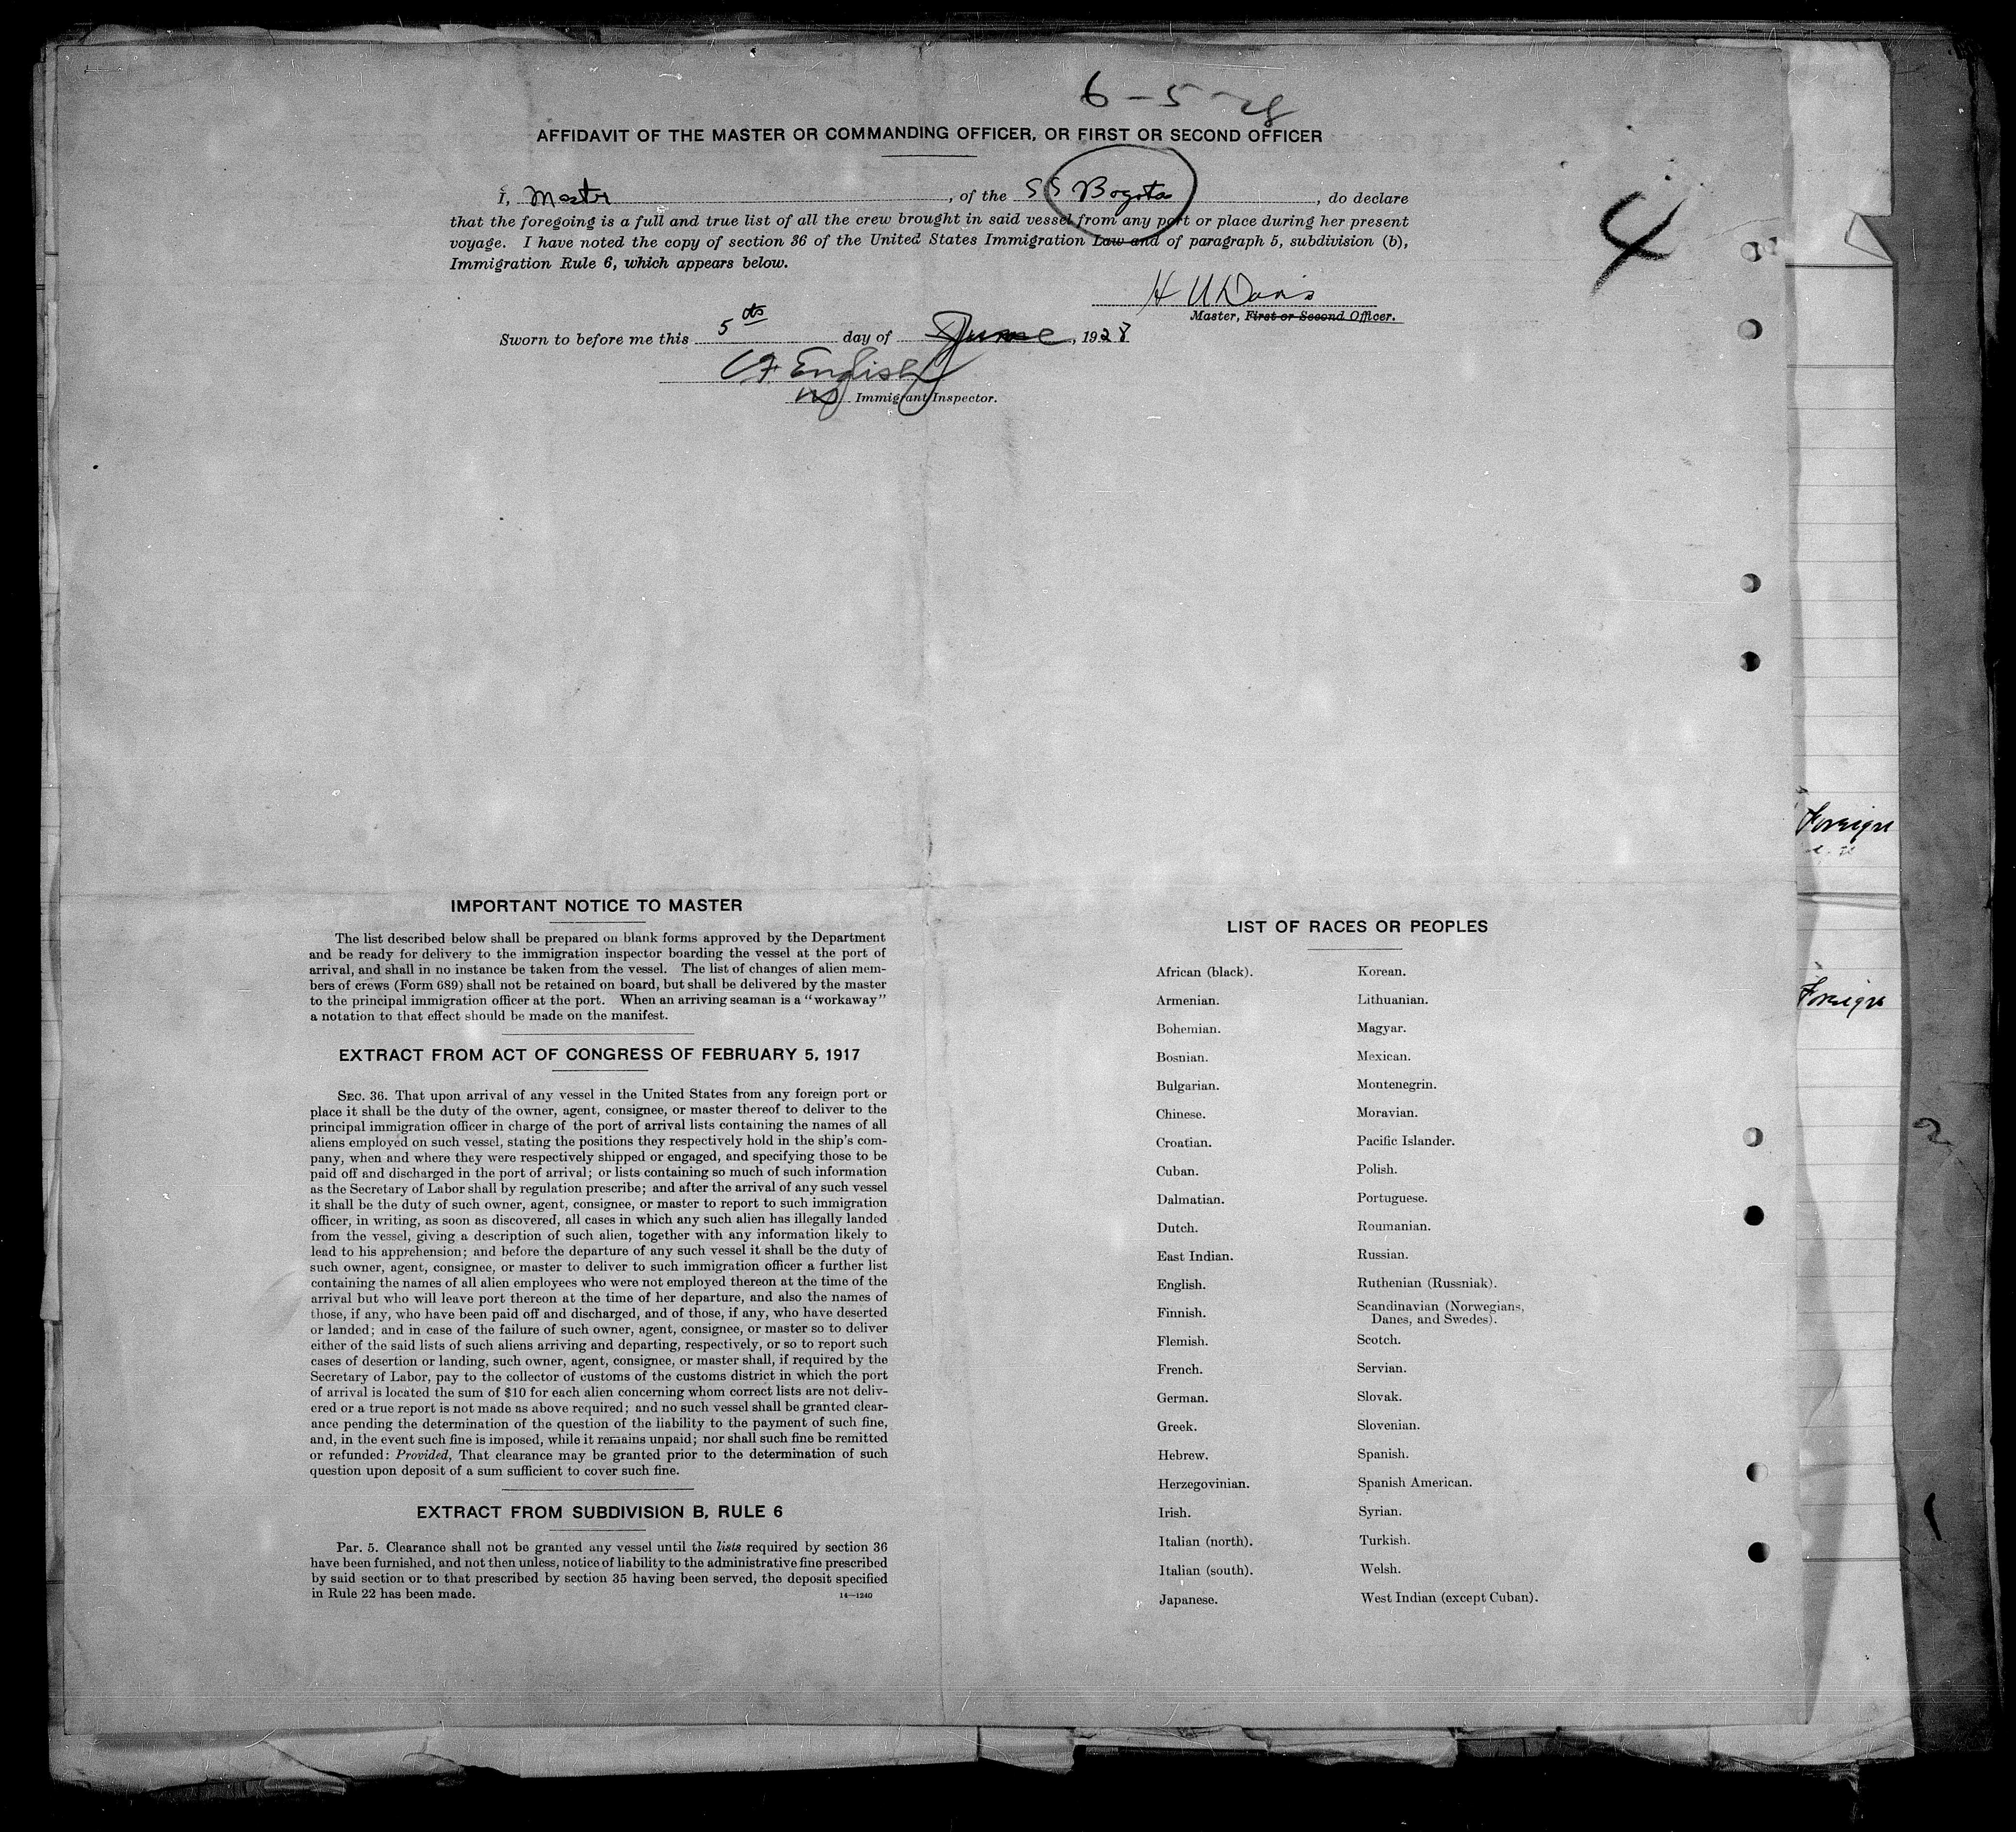 6-5-28
AFFIDAVIT OF THE MASTER OR COMMANDING OFFICER, OR FIRST OR SECOND OFFICER
I, Master, of the SS Bogota, do declare
that the foregoing is a full and true list of all the crew brought in said vessel from any port or place during her present
voyage. I have noted the copy of section 36 of the United States Immigration Law and of paragraph 5, subdivision (b),
Immigration Rule 6, which appears below.
4
H U Davis
Master, First or Second Officer.
Sworn to before me this 5th day of June, 1928
C F English
US Immigrant Inspector.
IMPORTANT NOTICE TO MASTER
The list described below shall be prepared on blank forms approved by the Department
and be ready for delivery to the immigration inspector boarding the vessel at the port of
arrival, and shall in no instance be taken from the vessel. The list of changes of alien mem-
bers of crews (Form 689) shall not be retained on board, but shall be delivered by the master
to the principal immigration officer at the port. When an arriving seaman is a "workaway"
a notation to that effect should be made on the manifest.
EXTRACT FROM ACT OF CONGRESS OF FEBRUARY 5, 1917
SEC. 36. That upon arrival of any vessel in the United States from any foreign port or
place it shall be the duty of the owner, agent, consignee, or master thereof to deliver to the
principal immigration officer in charge of the port of arrival lists containing the names of all
aliens employed on such vessel, stating the positions they respectively hold in the ship's com-
pany, when and where they were respectively shipped or engaged, and specifying those to be
paid off and discharged in the port of arrival; or lists containing so much of such information
as the Secretary of Labor shall by regulation prescribe; and after the arrival of any such vessel
it shall be the duty of such owner, agent, consignee, or master to report to such immigration
officer, in writing, as soon as discovered, all cases in which any such alien has illegally landed
from the vessel, giving a description of such alien, together with any information likely to
lead to his apprehension; and before the departure of any such vessel it shall be the duty of
such owner, agent, consignee, or master to deliver to such immigration officer a further list
containing the names of all alien employees who were not employed thereon at the time of the
arrival but who will leave port thereon at the time of her departure, and also the names of
those, if any, who have been paid off and discharged, and of those, if any, who have deserted
or landed; and in case of the failure of such owner, agent, consignee, or master so to deliver
either of the said lists of such aliens arriving and departing, respectively, or so to report such
cases of desertion or landing, such owner, agent, consignee, or master shall, if required by the
Secretary of Labor, pay to the collector of customs of the customs district in which the port
of arrival is located the sum of $10 for each alien concerning whom correct lists are not deliv-
ered or a true report is not made as above required; and no such vessel shall be granted clear-
ance pending the determination of the question of the liability to the payment of such fine,
and, in the event such fine is imposed, while it remains unpaid; nor shall such fine be remitted
or refunded: Provided, That clearance may be granted prior to the determination of such
question upon deposit of a sum sufficient to cover such fine.
EXTRACT FROM SUBDIVISION B, RULE 6
Par. 5. Clearance shall not be granted any vessel until the lists required by section 36
have been furnished, and not then unless, notice of liability to the administrative fine prescribed
by said section or to that prescribed by section 35 having been served, the deposit specified
in Rule 22 has been made.
14—1240
LIST OF RACES OR PEOPLES
African (black).
Armenian.
Bohemian.
Bosnian.
Bulgarian.
Chinese.
Croatian.
Cuban.
Dalmatian.
Dutch.
East Indian.
English.
Finnish.
Flemish.
French.
German.
Greek.
Hebrew.
Herzegovinian.
Irish.
Italian (north).
Italian (south).
Japanese.
Korean.
Lithuanian.
Magyar.
Mexican.
Montenegrin.
Moravian.
Pacific Islander.
Polish.
Portuguese.
Roumanian.
Russian.
Ruthenian (Russniak).
Scandinavian (Norwegians,
Danes, and Swedes).
Scotch.
Servian.
Slovak.
Slovenian.
Spanish.
Spanish American.
Syrian.
Turkish.
Welsh.
West Indian (except Cuban).
Foreign
Foreign
2
1